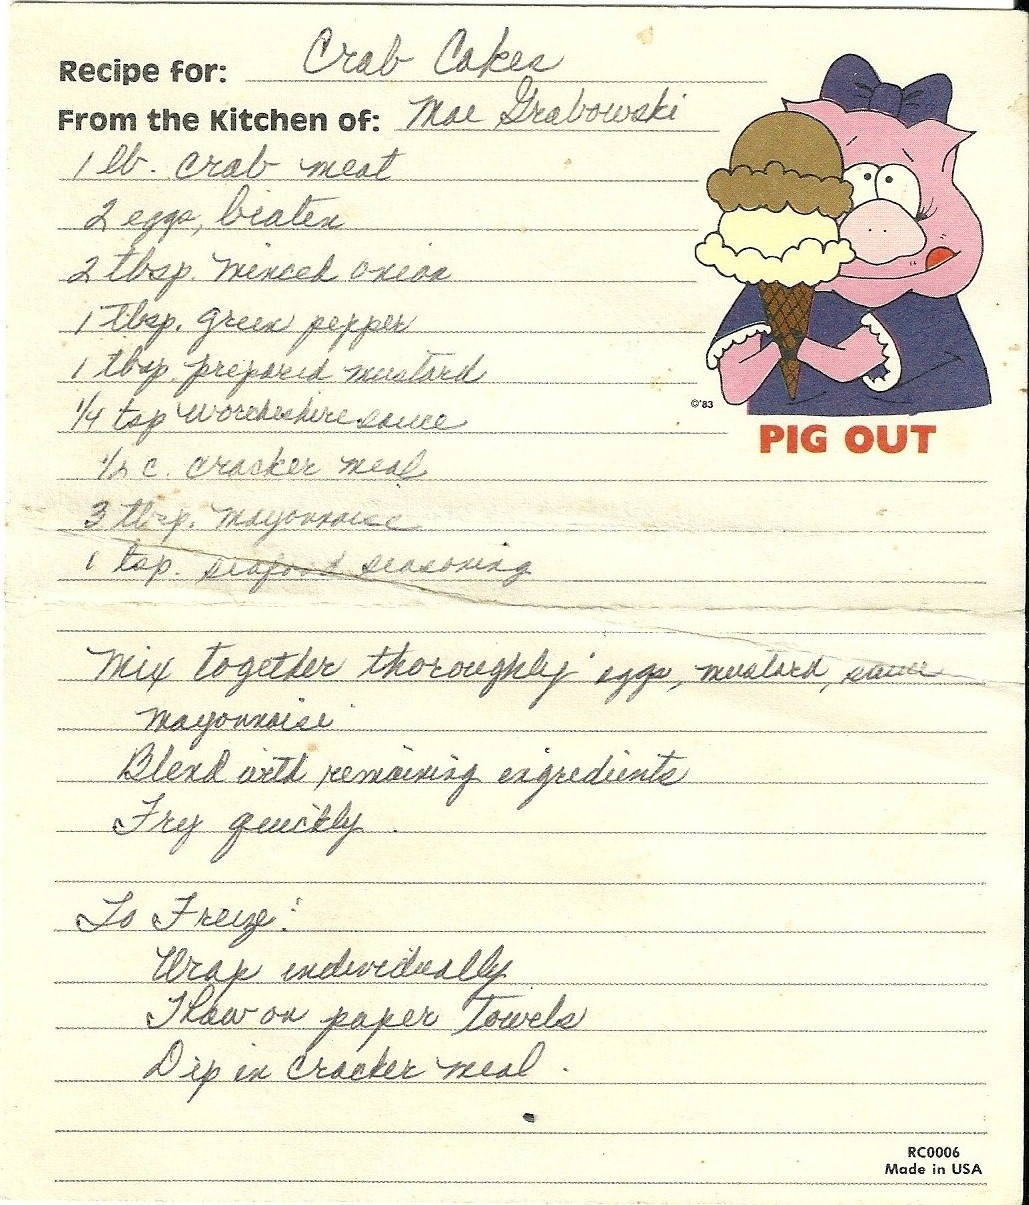 Recipe for: Crab Cakes
From the Kitchen of: Mae Grabowski
1 lb. crab meat
2 eggs, beaten
2 tbsp. minced onion
1 tbsp. green pepper
1 tbsp. prepared mustard
1/4 tsp worcheshire sauce
1/2 c. cracker meal
3 tbsp. mayonnaise
1 tsp. seafood seasoning
©'83
PIG OUT
Mix together thoroughly eggs, mustard, sauce
mayonnaise
Blend with remaining ingredients
Fry quickly.
To Freeze:
Wrap individually
Thaw on paper towels
Dip in cracker meal.
RC0006
Made in USA